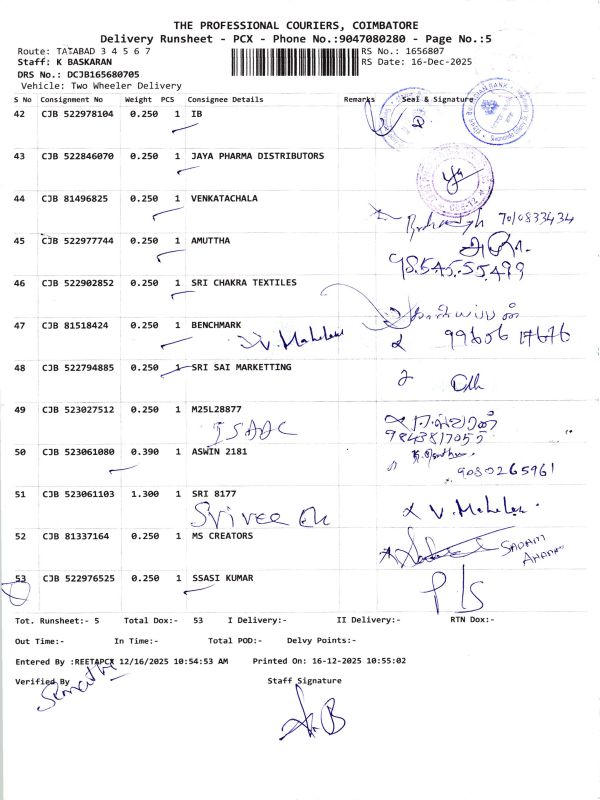 THE PROFESSIONAL COURIERS, COIMBATORE
Delivery Runsheet - PCX - Phone No.:9047080280 - Page No.:5
Route: TATABAD 3 4 5 6 7 RS No.: 1656807
Staff: K BASKARAN RS Date: 16-Dec-2025
DRS No.: DCJB165680705
Vehicle: Two Wheeler Delivery
S No Consignment No Weight PCS Consignee Details Remarks Seal & Signature
42 CJB 522978104 0.250 1 IB
43 CJB 522846070 0.250 1 JAYA PHARMA DISTRIBUTORS
44 CJB 81496825 0.250 1 VENKATACHALA
7010833434
45 CJB 522977744 0.250 1 AMUTTHA
98545.55499
46 CJB 522902852 0.250 1 SRI CHAKRA TEXTILES
47 CJB 81518424 0.250 1 BENCHMARK
V. Mahelen 99606 17676
48 CJB 522794885 0.250 1 SRI SAI MARKETTING
49 CJB 523027512 0.250 1 M25L28877
ISAAC 9843817057
50 CJB 523061080 0.390 1 ASWIN 2181
9080265961
51 CJB 523061103 1.300 1 SRI 8177
V. Mahelen
52 CJB 81337164 0.250 1 MS CREATORS
SADAM
53 CJB 522976525 0.250 1 SSASI KUMAR
P/S
Tot. Runsheet:- 5 Total Dox:- 53 I Delivery:- II Delivery:- RTN Dox:-
Out Time:- In Time:- Total POD:- Delvy Points:-
Entered By :REETAPCX 12/16/2025 10:54:53 AM Printed On: 16-12-2025 10:55:02
Verified By Staff Signature